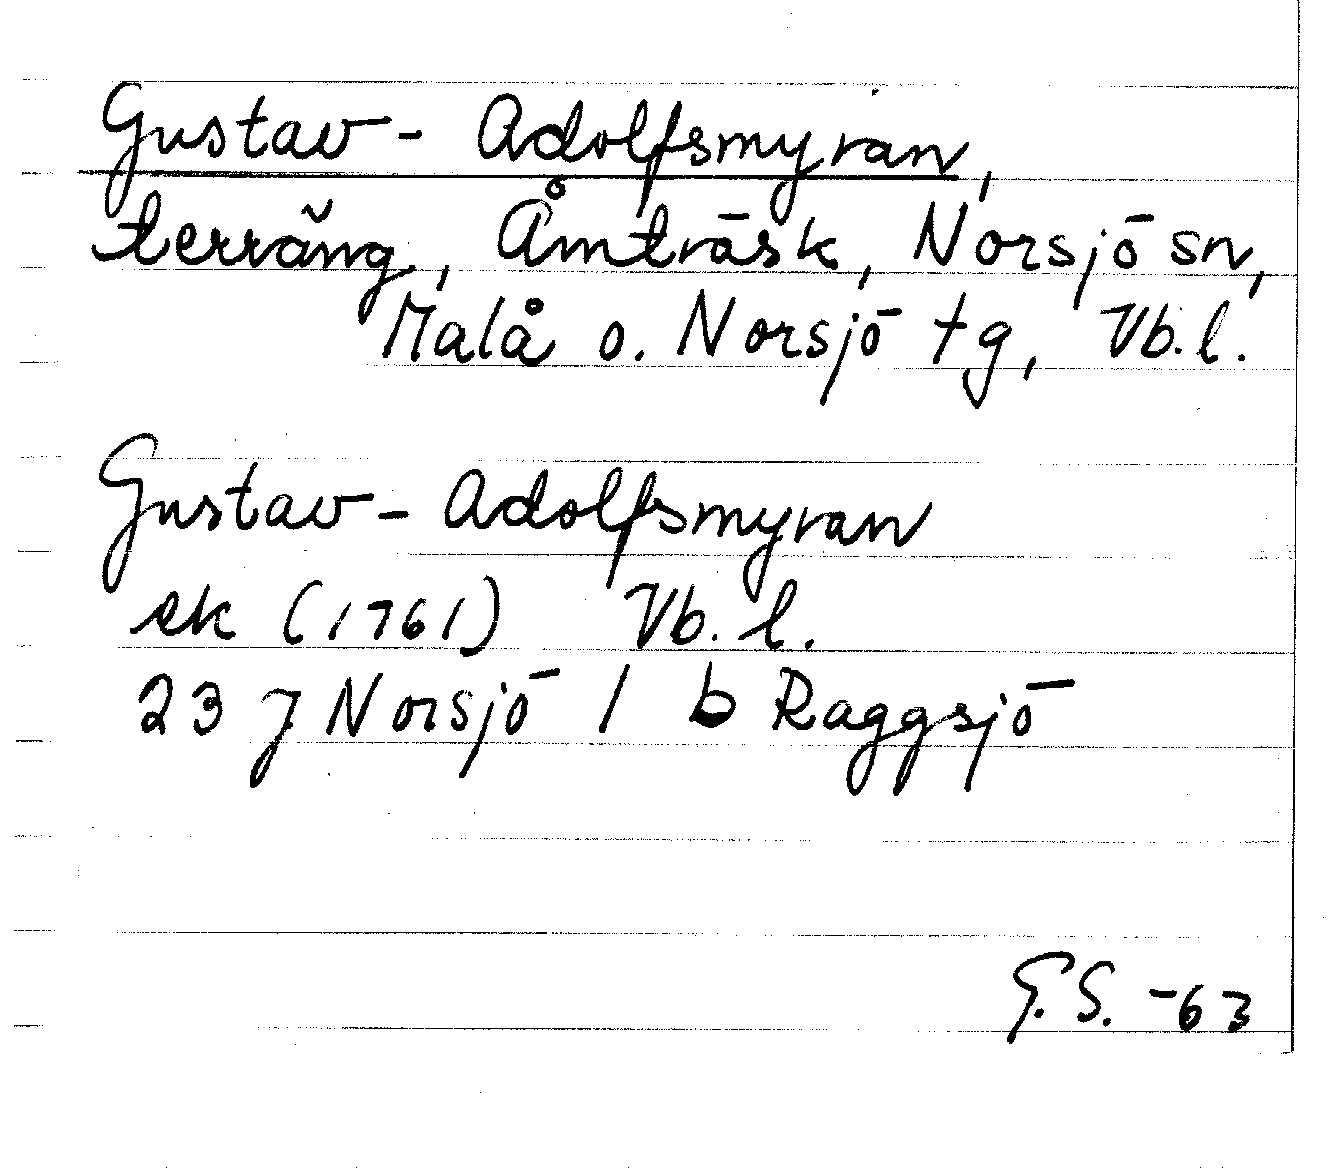 Gustav-Adolfsmyran,
terräng, Åmträsk, Norsjö sn,
Malå o. Norsjö tg, Vb.l.
Gustav-Adolfsmyran
ek (1761) Vb. l.
23 J Norsjö 1 b Raggsjö
G.S. -63